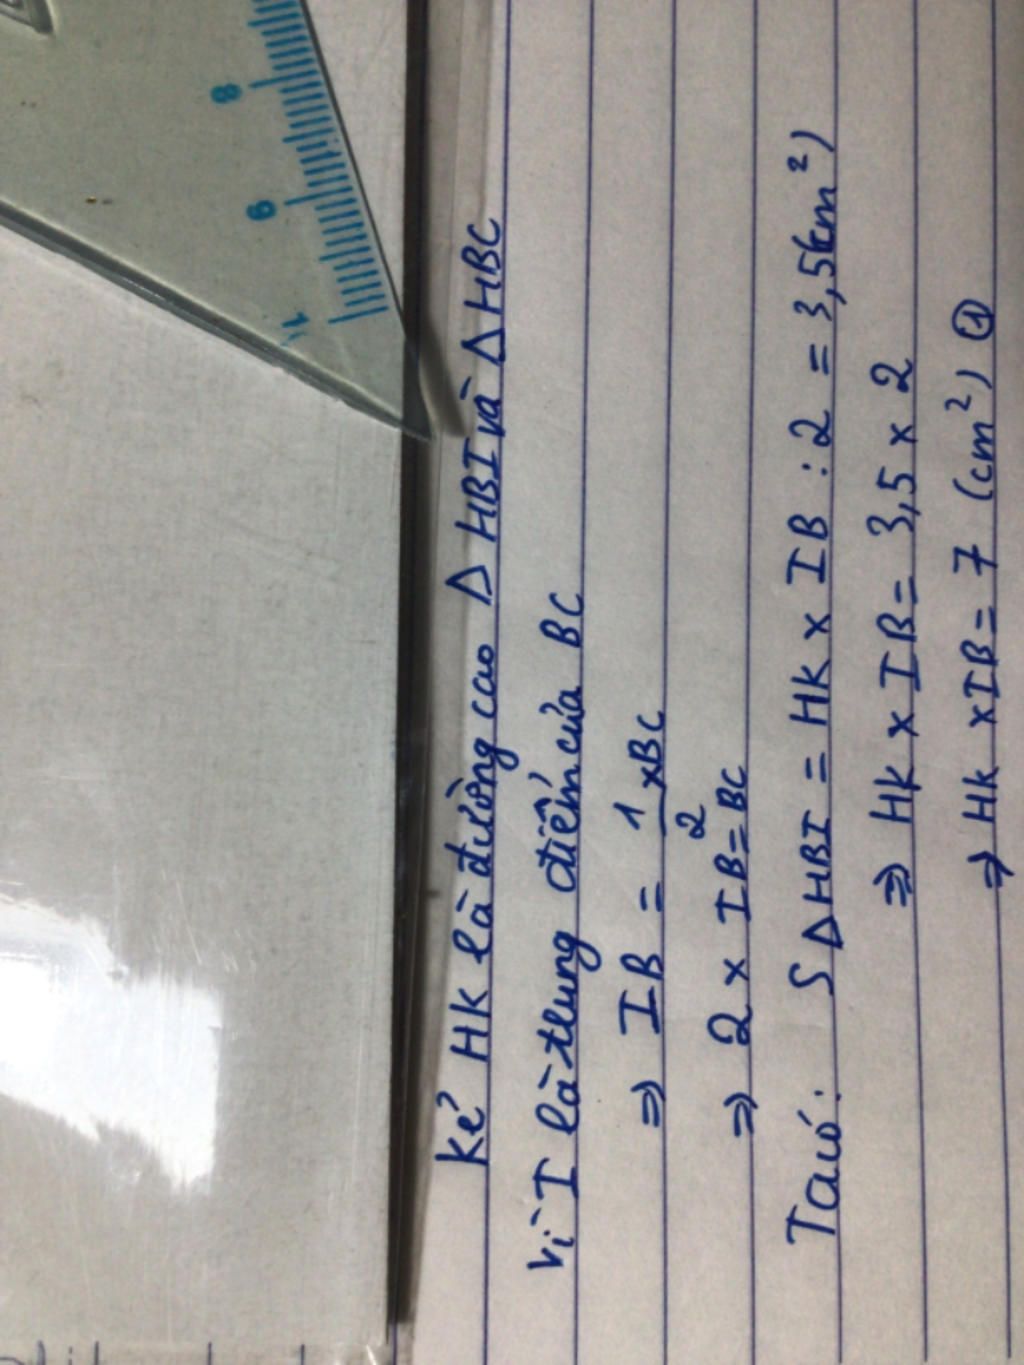 8
9
1
Kẻ HK là đường cao Δ HBI và Δ HBC
Vì I là trung điểm của BC
⇒ IB = 1/2 x BC
⇒ 2 x IB = BC
Ta có: S Δ HBI = HK x IB : 2 = 3,5 (cm²)
⇒ HK x IB = 3,5 x 2
⇒ HK x IB = 7 (cm²) ①